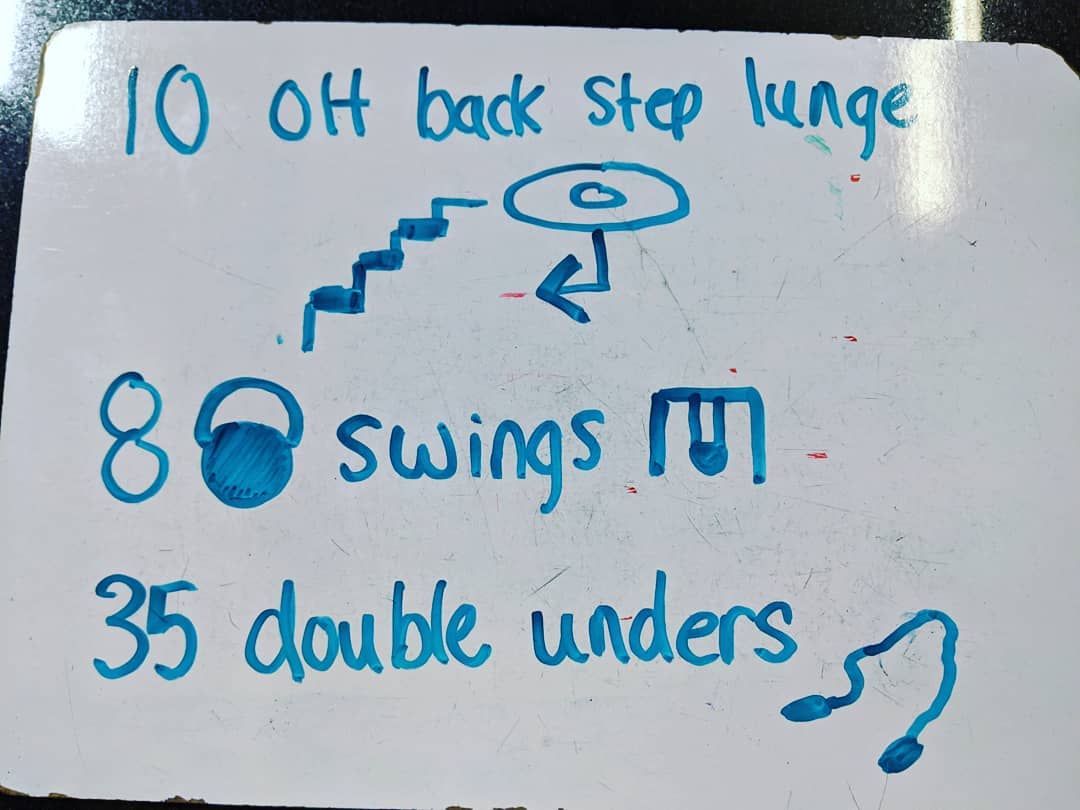 10 OH back step lunge
8 swings
35 double unders